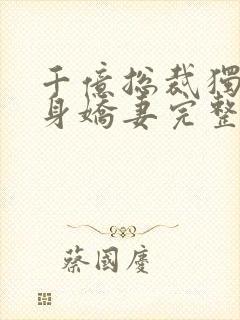 千億總裁獨
身嬌妻完整
蔡國慶